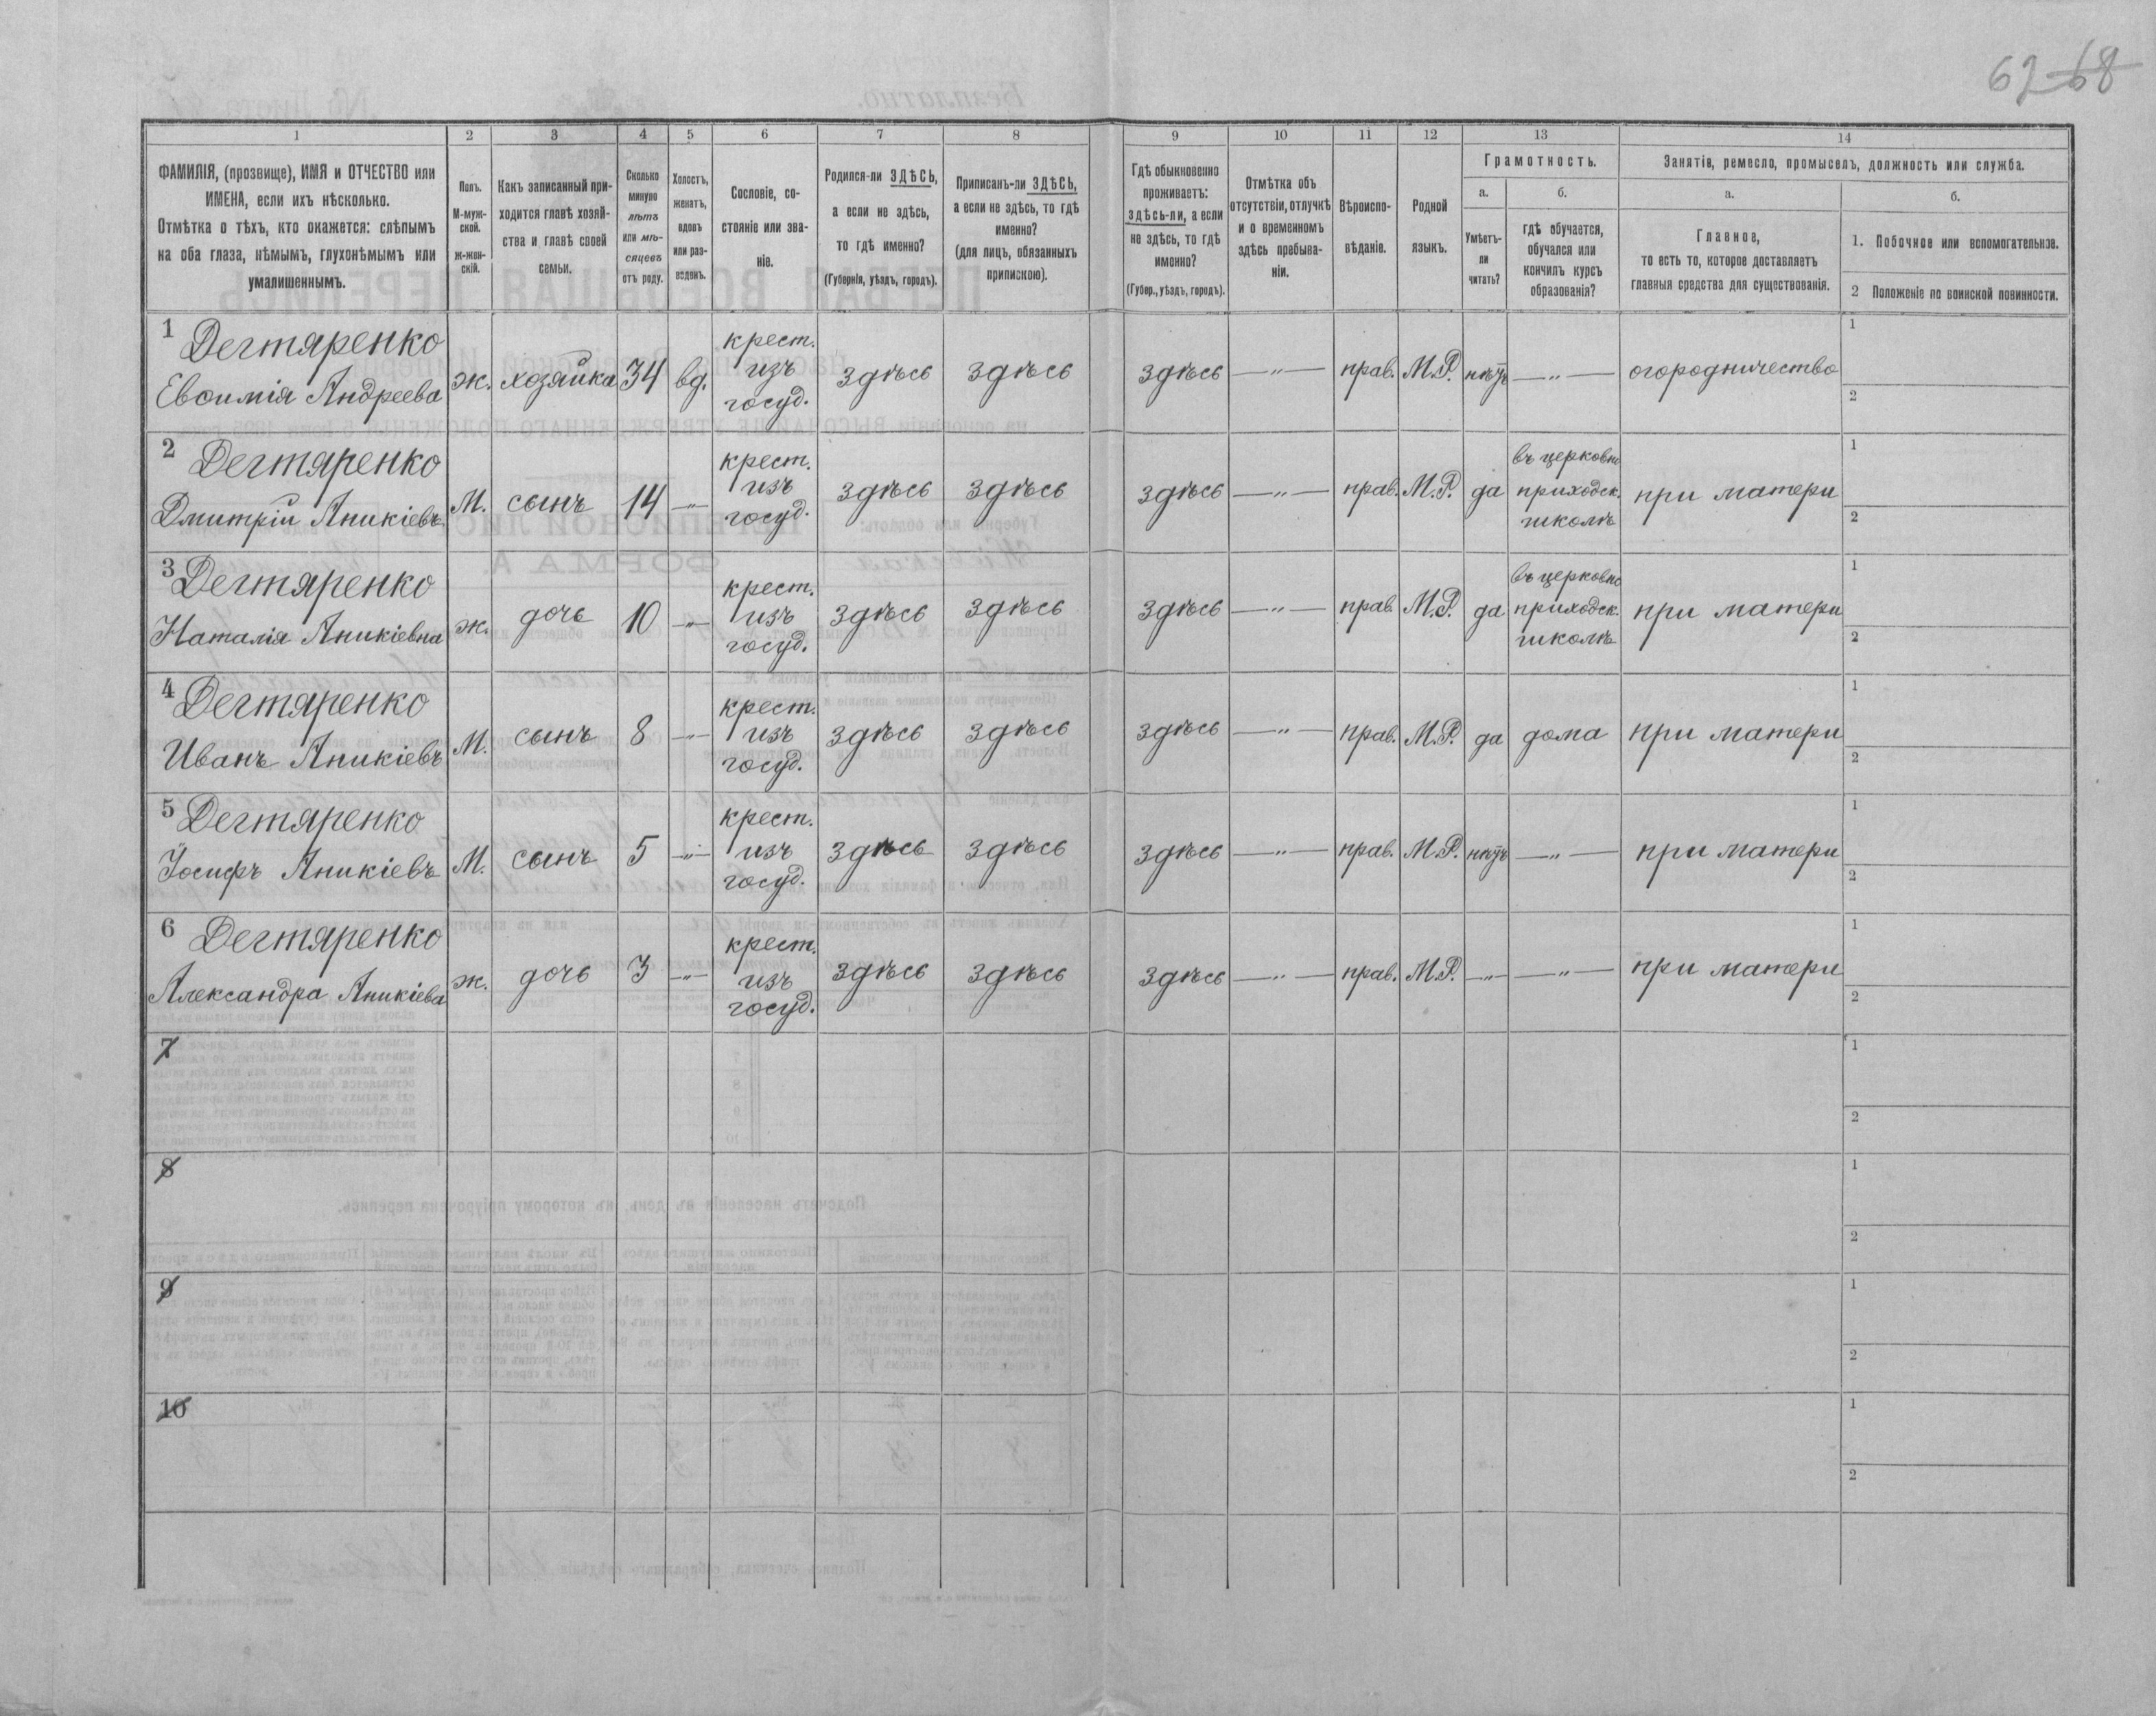 62 68
1 2 3 4 5 6 7 8 9 10 11 12 13 14
ФАМИЛІЯ, (прозвище), ИМЯ и ОТЧЕСТВО или
ИМЕНА, если ихъ нѣсколько.
Отмѣтка о тѣхъ, кто окажется: слѣпымъ
на оба глаза, нѣмымъ, глухонѣмымъ или
умалишеннымъ.
Полъ.
М-муж-
ской.
ж-жен-
скій.
Какъ записанный при-
ходится главѣ хозяй-
ства и главѣ своей
семьи.
Сколько
минуло
лѣтъ
или мѣ-
сяцевъ
отъ роду.
Холостъ,
женатъ,
вдовъ
или раз-
веденъ.
Сословіе, со-
стояніе или зва-
ніе.
Родился-ли ЗДѢСЬ,
а если не здѣсь,
то гдѣ именно?
(Губернія, уѣздъ, городъ).
Приписанъ-ли ЗДѢСЬ,
а если не здѣсь, то гдѣ
именно?
(для лицъ, обязанныхъ
припискою).
Гдѣ обыкновенно
проживаетъ:
здѣсь-ли, а если
не здѣсь, то гдѣ
именно?
(Губер., уѣздъ, городъ).
Отмѣтка объ
отсутствіи, отлучкѣ
и о временномъ
здѣсь пребыва-
ніи.
Вѣроиспо-
вѣданіе.
Родной
языкъ.
Грамотность.
а.
Умѣетъ-
ли
читать?
б.
гдѣ обучается,
обучался или
кончилъ курсъ
образованія?
Занятіе, ремесло, промыселъ, должность или служба.
а.
Главное,
то есть то, которое доставляетъ
главныя средства для существованія.
б.
1. Побочное или вспомогательное.
2 Положеніе по воинской повинности.
1 Дегтяренко
Евѳимія Андреева
ж.
хозяйка
34
вд.
крест.
изъ
госуд.
здѣсь
здѣсь
здѣсь
—„—
прав.
М.Р.
нѣтъ
—„—
огородничество
1
2
2 Дегтяренко
Дмитрій Аникіевъ
М.
сынъ
14
—„—
крест.
изъ
госуд.
здѣсь
здѣсь
здѣсь
—„—
прав.
М.Р.
да
въ церковно
приходск.
школѣ
при матери
1
2
3 Дегтяренко
Наталія Аникіевна
ж.
дочь
10
—„—
крест.
изъ
госуд.
здѣсь
здѣсь
здѣсь
—„—
прав.
М.Р.
да
въ церковно
приходск.
школѣ
при матери
1
2
4 Дегтяренко
Иванъ Аникіевъ
М.
сынъ
8
—„—
крест.
изъ
госуд.
здѣсь
здѣсь
здѣсь
—„—
прав.
М.Р.
да
дома
при матери
1
2
5 Дегтяренко
Іосифъ Аникіевъ
М.
сынъ
5
—„—
крест.
изъ
госуд.
здѣсь
здѣсь
здѣсь
—„—
прав.
М.Р.
нѣтъ
—„—
при матери
1
2
6 Дегтяренко
Александра Аникіева
ж.
дочь
3
—„—
крест.
изъ
госуд.
здѣсь
здѣсь
здѣсь
—„—
прав.
М.Р.
—„—
—„—
при матери
1
2
7
1
2
8
1
2
9
1
2
10
1
2